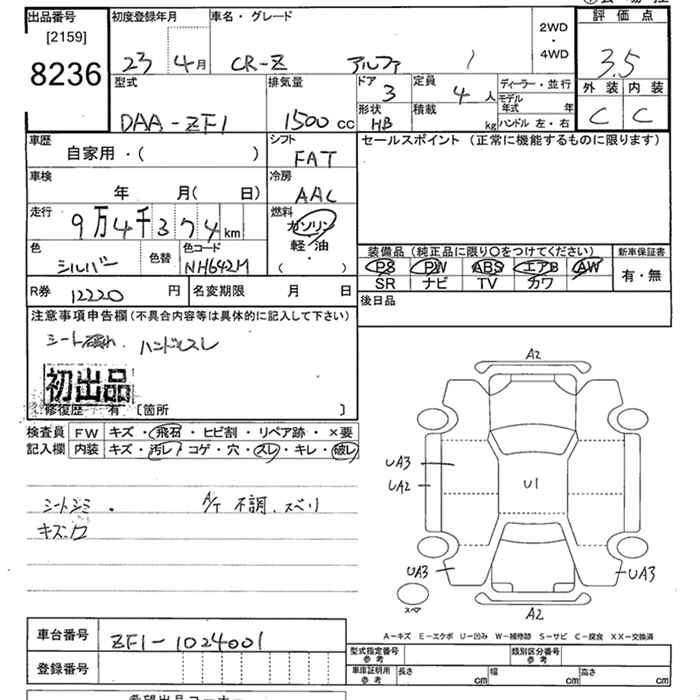 出品番号 [2159] 8236
初度登録年月 23年 4月
車名・グレード CR-Z アルファ
2WD ・ 4WD
評価点 3.5
外装 C 内装 C
型式 DAA-ZF1
排気量 1500 cc
ドア 3
形状 HB
定員 4人
積載 kg
ディーラー・並行
モデル年式 年
ハンドル 左・右
車歴 自家用・( )
シフト FAT
セールスポイント (正常に機能するものに限ります)
車検 年 月( 日)
冷房 AAC
走行 9万4千374km
燃料 ガソリン 軽・油 ・ ( )
色 シルバー 色替 色コード NH642M
装備品 (純正品に限り〇をつけてください) 新車保証書
PS PW ABS エアB AW 有・無
SR ナビ TV カワ
R券 12220 円 名変期限 月 日
後日品
注意事項申告欄 (不具合内容等は具体的に記入して下さい)
シート破れ ハンドルスレ
初出品
修復歴 有 [箇所 ]
検査員 FW キズ・飛石・ヒビ割・リペア跡・×要
記入欄 内装 キズ・汚レ・コゲ・穴・スレ・キレ・破レ
シートシミ A/T 不調、スベリ
キズ、凹
A2
UA3
UA2
U1
UA3 UA3
スペア
A2
A－キズ E－エクボ U－凹み W－補修跡 S－サビ C－腐食 XX－交換済
車台番号 ZF1-1024001
登録番号
型式指定番号 参考 類別区分番号 参考
車庫証明用 参考 長さ cm 幅 cm 高さ cm
希望出品コーナー